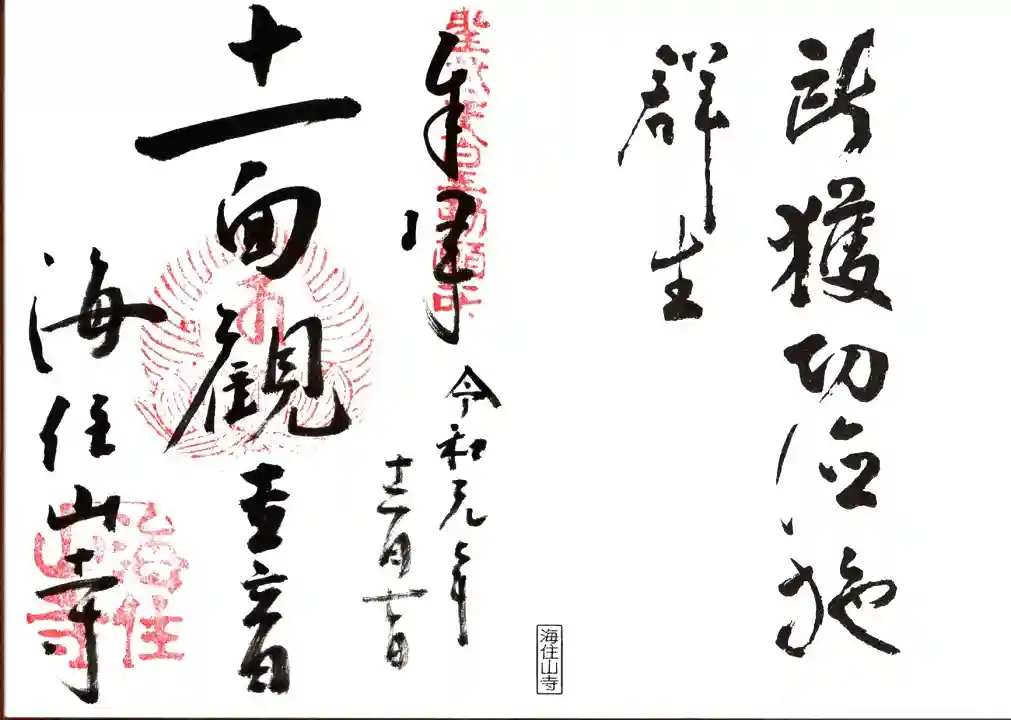 所獲功徳施
群生
聖武天皇勅願所
奉拝
令和元年
十二月
十一面観世音
海住山寺
海住山寺
海住山寺